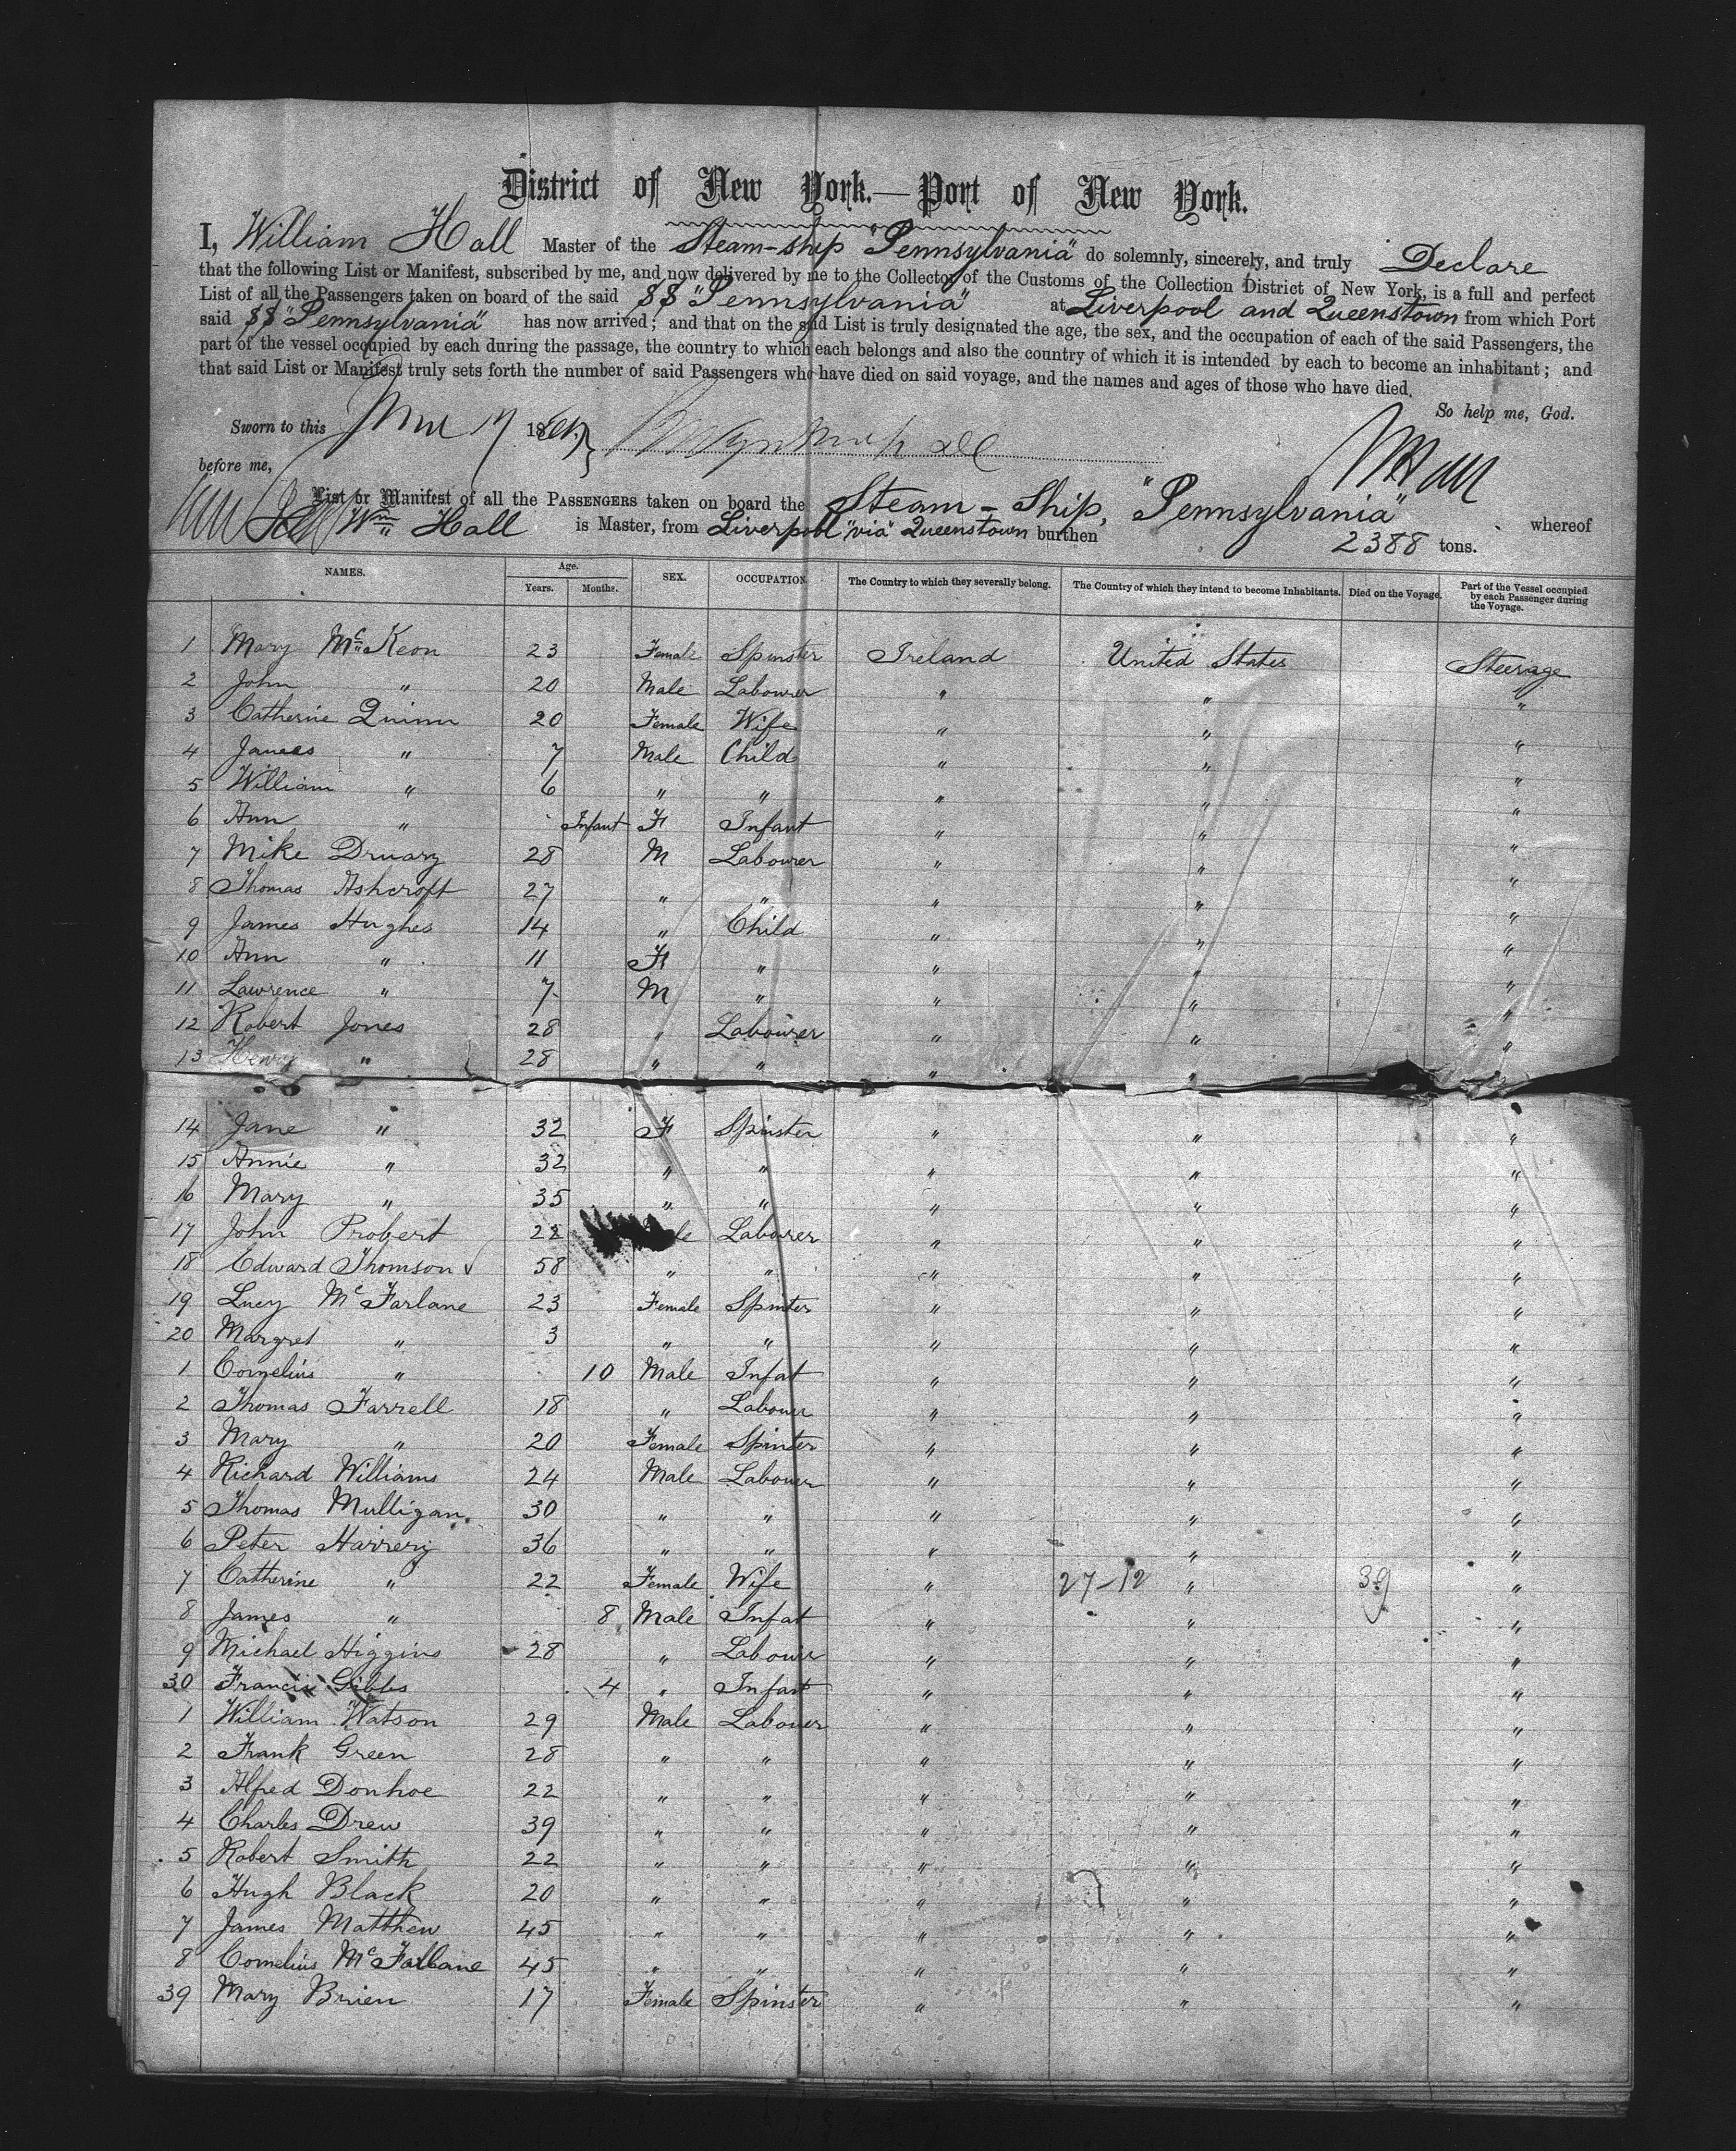 District of New York.—Port of New York.
I, William Hall Master of the Steam-ship "Pennsylvania" do solemnly, sincerely, and truly Declare
that the following List or Manifest, subscribed by me, and now delivered by me to the Collector of the Customs of the Collection District of New York, is a full and perfect
List of all the Passengers taken on board of the said SS "Pennsylvania" at Liverpool and Queenstown from which Port
said SS "Pennsylvania" has now arrived; and that on the said List is truly designated the age, the sex, and the occupation of each of the said Passengers, the
part of the vessel occupied by each during the passage, the country to which each belongs and also the country of which it is intended by each to become an inhabitant; and
that said List or Manifest truly sets forth the number of said Passengers who have died on said voyage, and the names and ages of those who have died.
So help me, God.
Sworn to this 17 18
before me,
List or Manifest of all the PASSENGERS taken on board the Steam-Ship, "Pennsylvania" whereof
Wm Hall is Master, from Liverpool "via" Queenstown burthen 2388 tons.
NAMES. Age. Years. Months. SEX. OCCUPATION. The Country to which they severally belong. The Country of which they intend to become Inhabitants. Died on the Voyage. Part of the Vessel occupied by each Passenger during the Voyage.
1 Mary McKeon 23 Female Spinster Ireland United States Steerage
2 John " 20 Male Labourer " " "
3 Catherine Quinn 20 Female Wife " " "
4 James " 7 Male Child " " "
5 William " 6 " " " " "
6 Ann " Infant F Infant " " "
7 Mike Druary 28 M Labourer " " "
8 Thomas Ashcroft 27 " " " " "
9 James Hughes 14 " Child " " "
10 Ann " 11 F " " " "
11 Lawrence " 7 M " " " "
12 Robert Jones 28 " Labourer " " "
13 Henry " 28 " " " " "
14 Jane " 32 F Spinster " " "
15 Annie " 32 " " " " "
16 Mary " 35 " " " " "
17 John Probert 22 le Labourer " " "
18 Edward Thomson 58 " " " " "
19 Lucy McFarlane 23 Female Spinter " " "
20 Margret " 3 " " " " "
1 Cornelius " 10 Male Infat " " "
2 Thomas Farrell 18 " Labouer " " "
3 Mary " 20 Female Spinter " " "
4 Richard Williams 24 Male Labouer " " "
5 Thomas Mulligan 30 " " " " "
6 Peter Harrery 36 " " " " "
7 Catherine " 22 Female Wife " 27-12 " 39 "
8 James " 8 Male Infat " " "
9 Michael Higgins 28 " Labouer " " "
30 Francis Gibbs 4 " Infant " " "
1 William Watson 29 Male Labouer " " "
2 Frank Green 28 " " " " "
3 Alfred Donhoe 22 " " " " "
4 Charles Drew 39 " " " " "
5 Robert Smith 22 " " " " "
6 Hugh Black 20 " " " " "
7 James Matthew 45 " " " " "
8 Cornelius McFarlane 45 " " " " "
39 Mary Brien 17 Female Spinster " " "